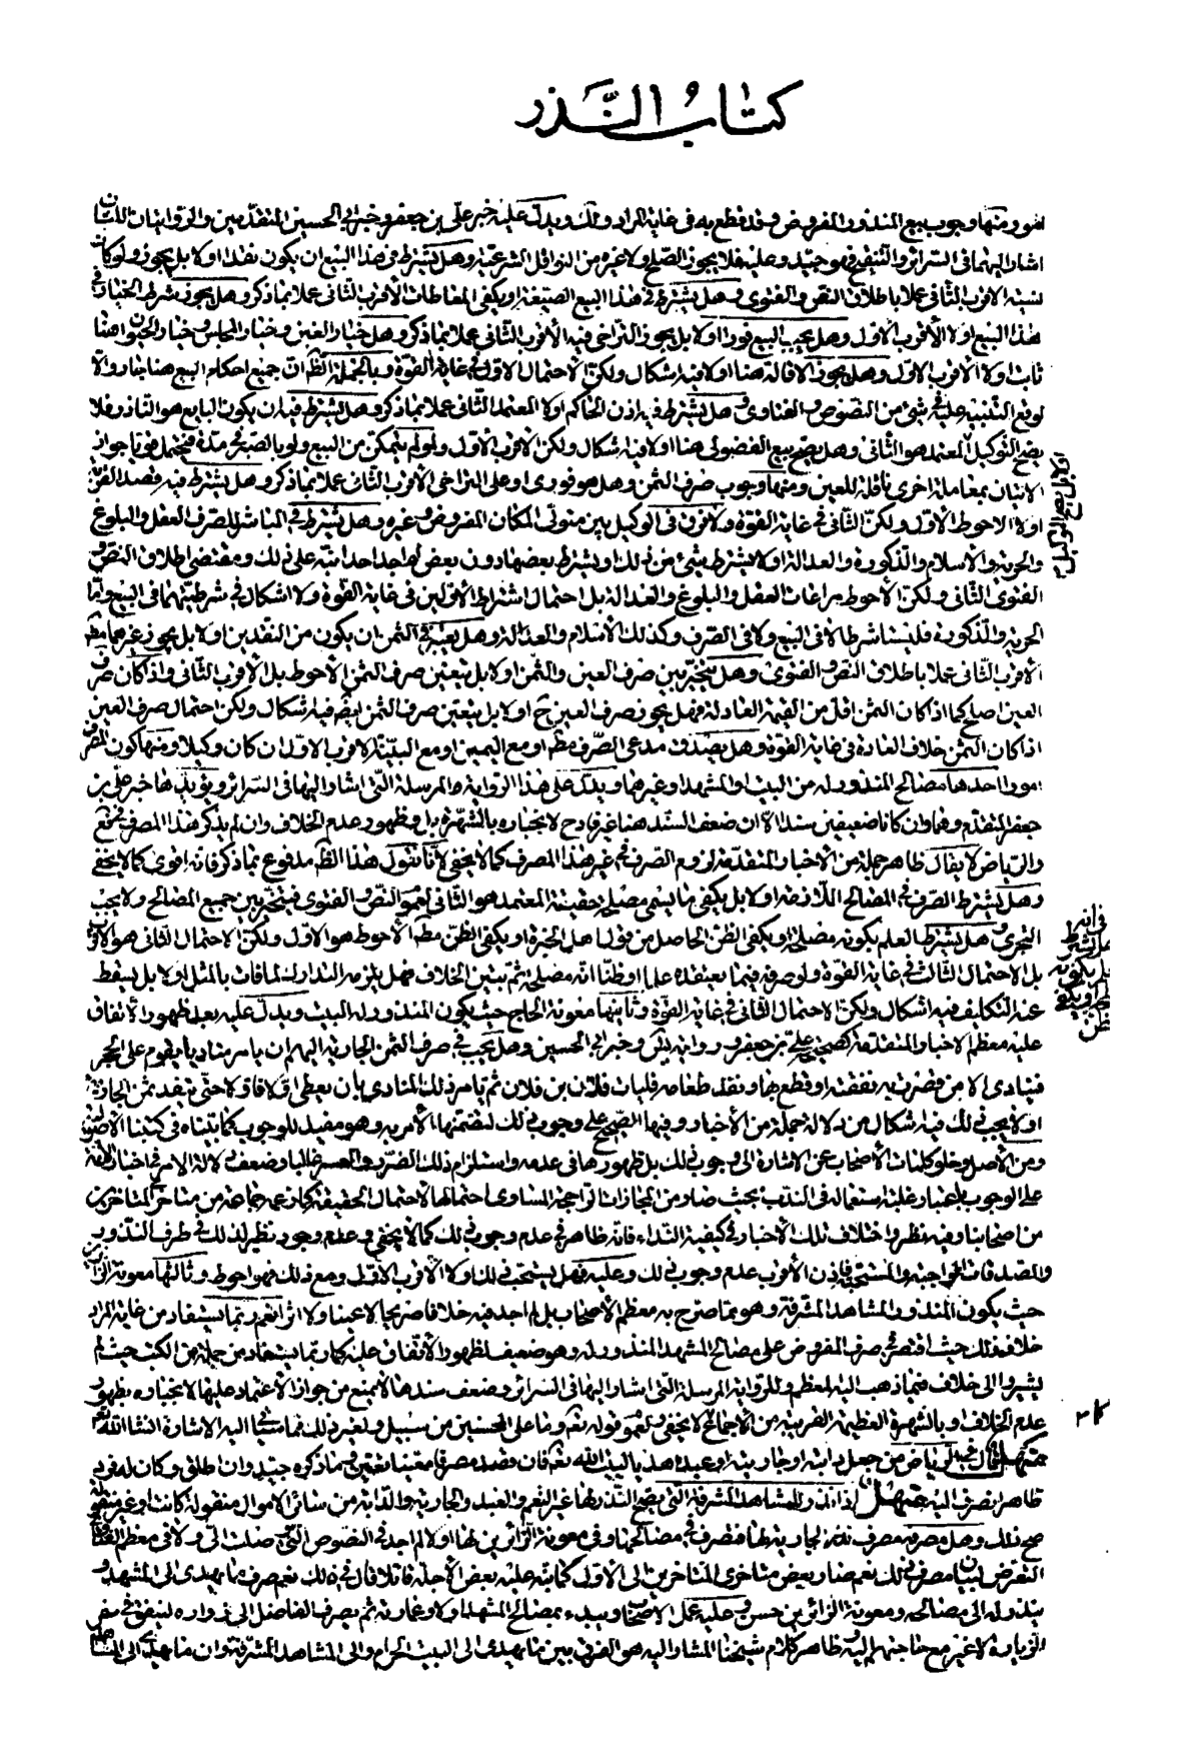 كتاب النذر
امور منها وجوب بيع المنذور المفروض وقد قطع به فى غاية المراد ولك ويدل عليه خبر على بن جعفر وخبر ابى الحسين المتقدمين والروايتان اللتان
اشار اليهما فى السرائر والتنقيح فهو جيد وعليه فلا يجوز الصلح ولا غيره من النواقل الشرعية وهل يشترط فى هذا البيع ان يكون نقدا اولا بل يجوز ولو كان
نسيئة الاقرب الثانى عملا باطلاق النص والفتوى وهل يشترط فى هذا البيع الصيغة او يكفى المعاطات الأقرب الثانى عملا بما ذكر وهل يجوز شرط الخيار فى
هذا البيع اولا الأقرب الاول وهل يجب البيع فورا اولا بل يجوز التراخى فيه الأقرب الثانى عملا بما ذكر وهل خيار الغبن وخيار المجلس وخيار الحيوان هنا
ثابت اولا الأقرب الاول وهل يجوز الاقالة هنا اولا فيه اشكال ولكن الاحتمال الاول فى غاية القوة وبالجملة الظ ان جميع احكام البيع هنا ثابت والا
لوقع التنبيه عليه فى شئ من النصوص والفتاوى وهل يشترط فيه اذن الحاكم اولا المعتمد الثانى عملا بما ذكر وهل يشترط فيه ان يكون البايع هو الناذر فلا
يصح التوكيل المعتمد هو الثانى وهل يصح بيع الفضولى هنا اولا فيه اشكال ولكن الأقرب الأول ولو لم يتمكن من البيع ولو بالصبر فى مدة فيحتمل قويا جواز
الاتيان بمعاملة اخرى ناقلة للعين ومنها وجوب صرف الثمن وهل هو فورى او على التراخى الأقرب الثانى عملا بما ذكر وهل يشترط فيه قصد القربة
اولا الاحوط الاول ولكن الثانى فى غاية القوة ولا فرق فى الوكيل بين متولى المكان المفروض وغيره وهل يشترط فى المباشر للصرف العقل والبلوغ
والحرية والاسلام والذكورة والعدالة اولا يشترط شئ من ذلك او يشترط بعضها دون بعض لم اجد احدا نبه على ذلك ومقتضى اطلاق النص و
الفتوى الثانى ولكن الأحوط مراعات العقل والبلوغ والعدالة بل احتمال اشتراط الأولين فى غاية القوة ولا اشكال فى شرطيتهما فى البيع واما
الحرية والذكورة فليستا شرطا لا فى البيع ولا فى الصرف وكذلك الاسلام والعدالة وهل يعتبر فى الثمن ان يكون من النقدين اولا بل يجوز غيرهما مط
الأقرب الثانى عملا باطلاق النص والفتوى وهل يتخير بين صرف العين والثمن اولا بل يتعين صرف الثمن الأحوط بل الأقرب الثانى واذا كان صرف
العين اصلح كما اذا كان الثمن اقل من القيمة العادلة فهل يجوز صرف العين ح اولا بل يتعين صرف الثمن فيه اشكال ولكن احتمال صرف العين
اذا كان الثمن خلاف العادة فى غاية القوة وهل يصدق مدعى الصرف مط او مع اليمين او مع البينة الاقرب الاول ان كان وكيلا ومنها كون المصرف
امورا احدها مصالح المنذور له من البيت او المشهد او غيرهما ويدل على هذا الرواية المرسلة التى اشار اليها فى السرائر ويؤيدها خبر على بن
جعفر المتقدم وهما وان كانا ضعيفين سندا الا ان ضعف السند هنا غير قادح لانجباره بالشهرة بل وظهور عدم الخلاف وان لم يذكر هذا المصرف فى مع
والرياض لا يقال ظاهر جملة من الاخبار المتقدمة لزوم الصرف فى غير هذا المصرف كما لا يخفى لأنا نقول هذا الظ مدفوع بما ذكر فانه اقوى كما لا يخفى
وهل يشترط الصرف فى المصالح اللازمة اولا بل يكفى ما يسمى مصلحة حقيقة المعتمد هو الثانى لعموم النص والفتوى فيتخير بين جميع المصالح ولا يجب
التحرى وهل يشترط العلم بكونه مصلحة او يكفى الظن الحاصل من قول اهل الخبرة او يكفى الظن مط الأحوط هو الاول ولكن الاحتمال الثانى هو الاقرب
بل الاحتمال الثالث فى غاية القوة ولو صرفه فيما يعتقده علما او ظنا انه مصلحة ثم تبين الخلاف فهل يلزمه التدارك لما فات بالمثل اولا بل يسقط
عنه التكليف فيه اشكال ولكن الاحتمال الثانى فى غاية القوة وثانيها معونة الحاج حيث يكون المنذور له البيت ويدل عليه بعد ظهور الاتفاق
عليه معظم الاخبار المتقدمة كصحيحة على بن جعفر ورواية وخبر ابى الحسين وهل يجب فى صرف الثمن الجارية اليهم ان يامر مناديا يقوم على الحجر
فينادى الا من قصرت به نفقته او قطع بها ونفد طعامه فليات فلان بن فلان ثم يامر ذلك المنادى بان يعطى اولا فاولا حتى ينفد ثمن الجارية
اولا يجب ذلك فيه اشكال من دلالة جملة من الأخبار وفيها الصحيح على وجوب ذلك لتضمنها الأمر به وهو مفيد للوجوب كما بيناه فى كتبنا الاصولية
ومن الأصل وخلو كلمات الأصحاب عن الاشارة الى وجوب ذلك بل ظهورها فى عدمه واستلزام ذلك الضرر والعسر غالبا وضعف دلالة الامر فى اخبار الائمة
على الوجوب باعتبار غلبة استعماله فى الندب بحيث صار من المجازات الراجحة المساوى احتمالها لاحتمال الحقيقة كما زعمه جماعة من متاخرى المتاخرين
من اصحابنا وفيه نظر واختلاف تلك الأخبار فى كيفية النداء فانه ظاهر فى عدم وجوب ذلك كما لا يخفى وعدم وجود نظير لذلك فى طرف النذور
والصدقات الواجبة والمستحبة فاذن الأقرب عدم وجوب ذلك وعليه فهل يستحب ذلك اولا الأقرب الاول ومع ذلك فهو احوط وثالثها معونة الزائرين
حيث يكون المنذور المشاهد المشرفة وهو مما صرح به معظم الأصحاب بل لم اجد فيه خلافا صريحا لا عينا ولا اثرا نعم ربما يستفاد من غاية المراد
خلاف ذلك حيث اقتصر فى صرف المفروض على مصالح المشهد المنذور له وهو ضعيف لظهور الأتفاق عليه كما ربما يستفاد من جملة من الكتب حيث لم
يشيروا الى خلاف فما ذهب اليه المعظم وللرواية المرسلة التى اشار اليها فى السرائر وضعف سندها لا يمنع من جواز الأعتماد عليها لانجباره بظهور
عدم الخلاف او بالشهرة العظيمة القريبة من الأجماع كما لا يخفى ولعموم قوله تع وما على المحسنين من سبيل ولغير ذلك مما سياتى اليه الاشارة انشاء الله تع
منهل قال فى الرياض من جعل دابته او جاريته او عبده هديا لبيت الله تع فان قصد مصرفا معينا تعين وما ذكره جيد وان اطلق وكان له فى
ظاهر يصرف اليه منهل اذا نذر للمشاهد المشرفة التى يصح النذر لها غير النعم والعبد والجارية والدابة من سائر الاموال منقولة كانت او غير منقولة
صح ذلك وهل مصرفه مصرف نذر الجارية لها فيصرف فى مصالحها وفى معونة الزائرين لها اولا لم اجد فى النصوص التى وصلت الى ولا فى معظم الفتاوى
التعرض لبيان مصرف ذلك نعم صار بعض متاخرى المتاخرين الى الأول كما نبه عليه بعض الأجلة قائلا قال فى ذلك نعم صرف ما يهدى الى المشهد و
ينذر له الى مصالحه ومعونة الزائرين حسن وعليه عمل الاصحاب ويبدء بمصالح المشهد اولا وعمارته ثم يصرف الفاضل الى زواره لينفق فى سفر
الزيارة لا غير مع حاجتهم اليه وظاهر كلام شيخنا المشار اليه هو الفرق بين ما يهدى الى البيت الحرام والى المشاهد المشرفة وان ما يهدى الى المشاهد